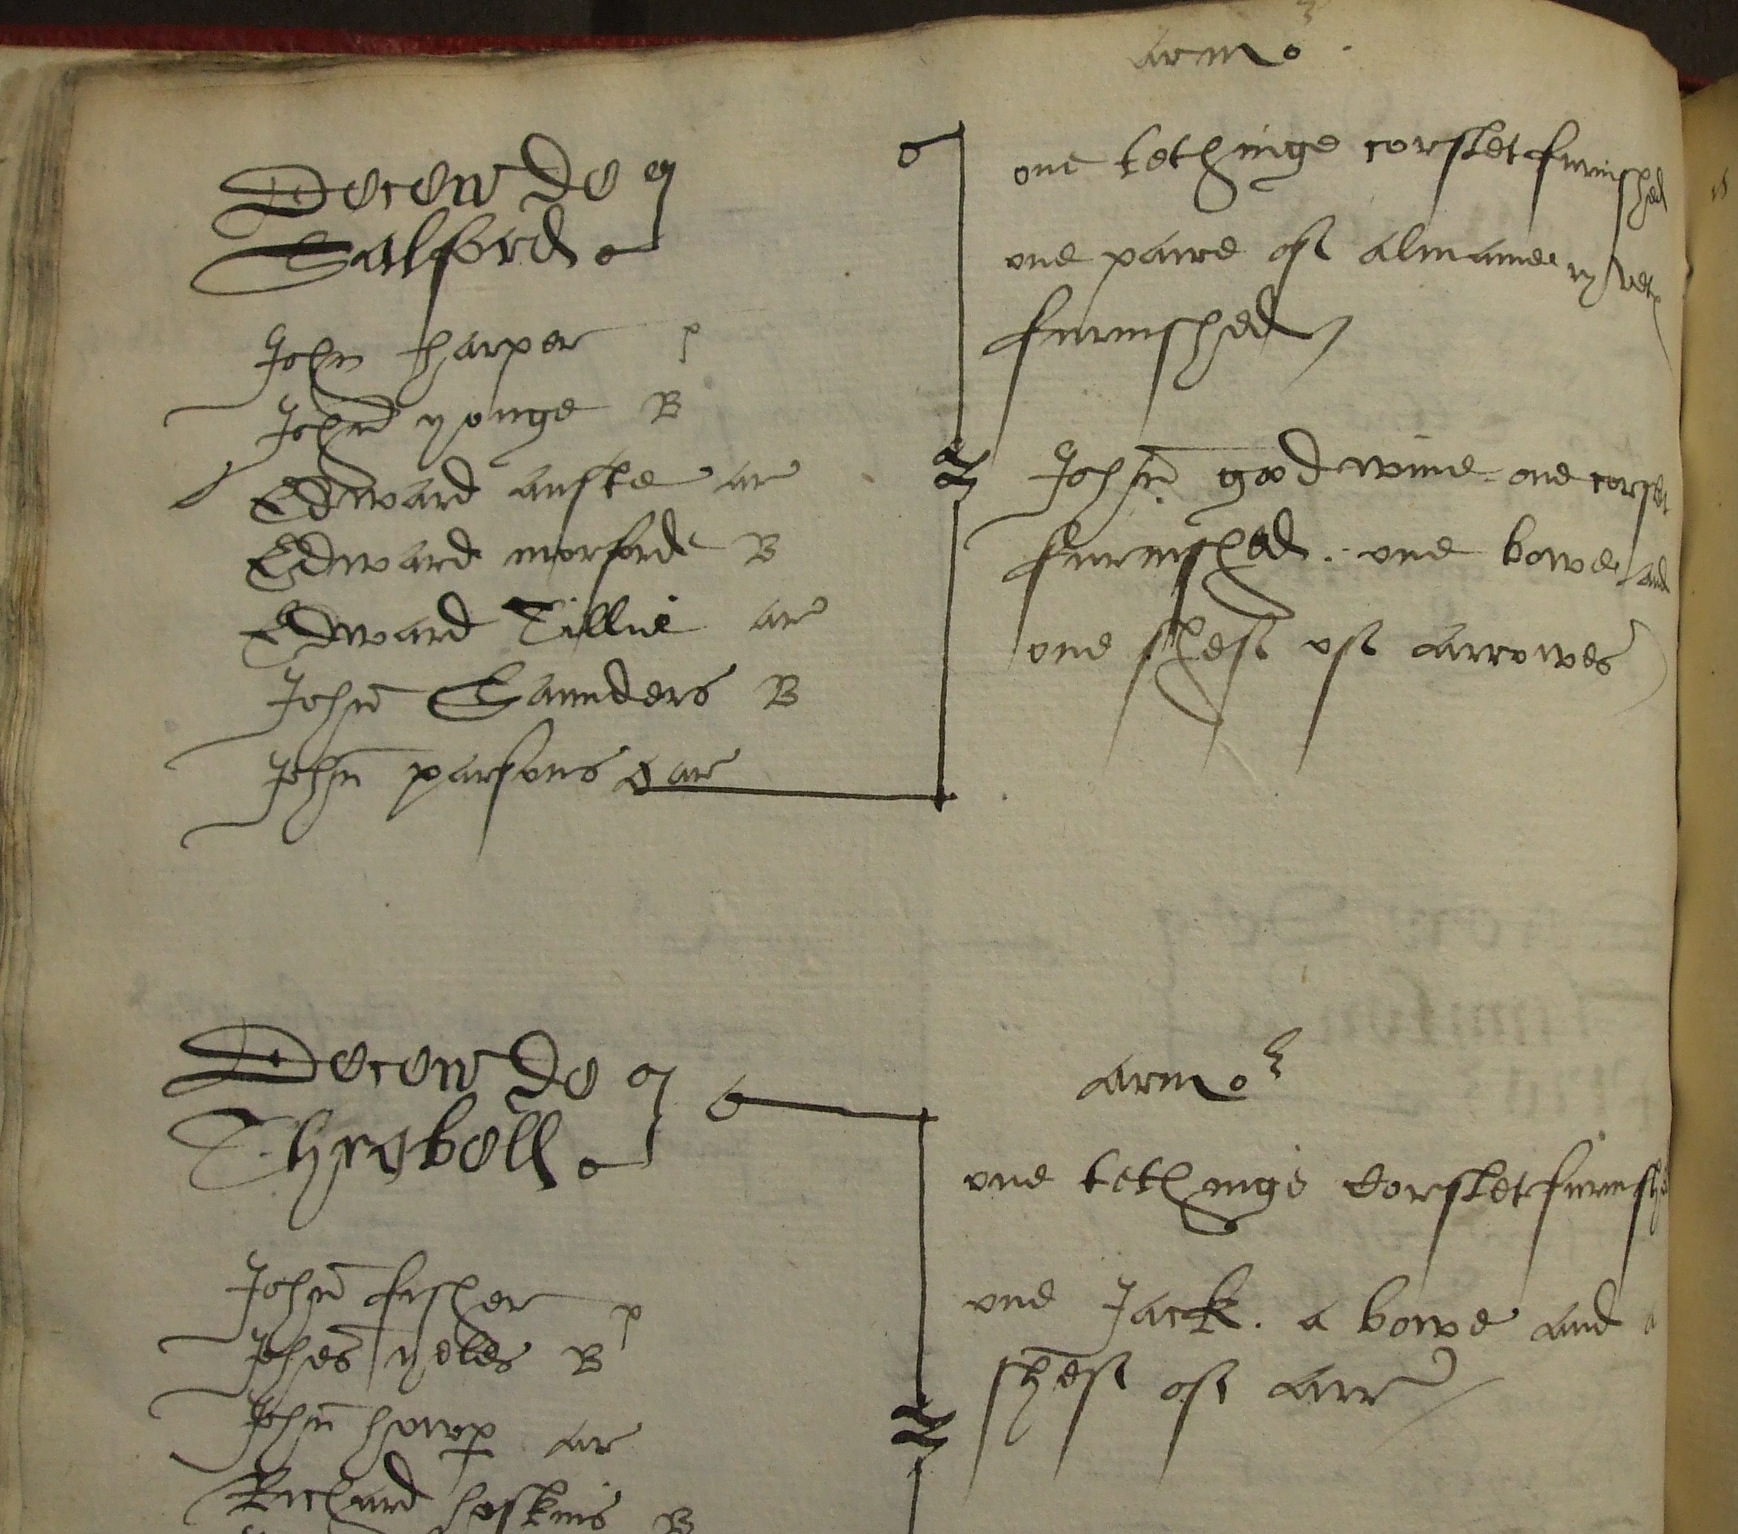 armor
Decen de
Salford
John harper p
John yonge B
Edward auste ar
Edward morforde B
Edward Tillie ar
John Saunders B
John parsons ar
one tethinge corslet furnished
one paire of almaine ryvets
furnished
John godwine one corslet
furnished. one bowe and
one shefe of arrowes
Decen de
Throboll
John fisher p
Johes yeles B
John howp ar
Richard hoskins B
armor
one tethinge Corslet furnishe
one Jack. a bowe and a
shefe of arr